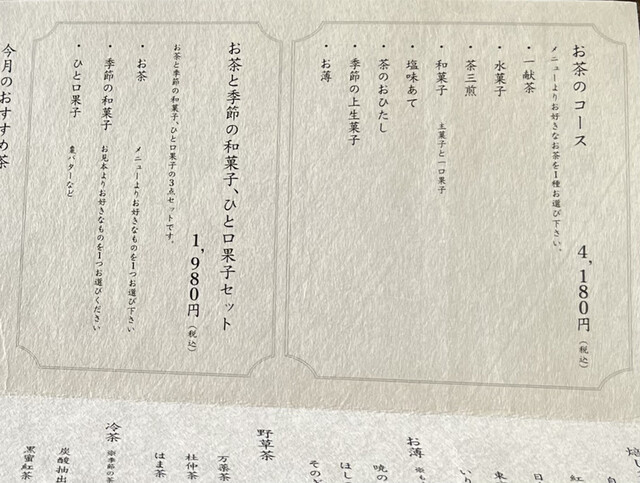 お茶のコース
4,180円（税込）
メニューよりお好きなお茶を1種お選び下さい。
・一献茶
・水菓子
・茶三煎
・和菓子 主菓子と一口果子
・塩味あて
・茶のおひたし
・季節の上生菓子
・お薄
お茶と季節の和菓子、ひと口果子セット
1,980円（税込）
お茶と季節の和菓子、ひと口果子の3点セットです。
・お茶 メニューよりお好きなものを1つお選び下さい
・季節の和菓子 お見本よりお好きなものを1つお選びください
・ひと口果子 棗バターなど
今月のおすすめ茶
お薄
野草茶
万葉茶
杜仲茶
はま茶
冷茶
炭酸抽出
黒蜜紅茶